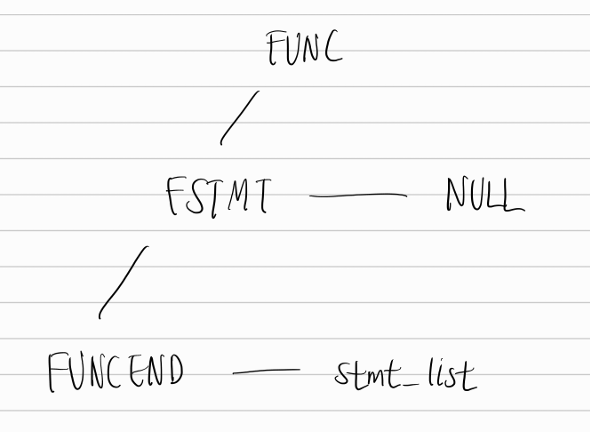 FUNC
FSTMT NULL
FUNCEND stmt_list